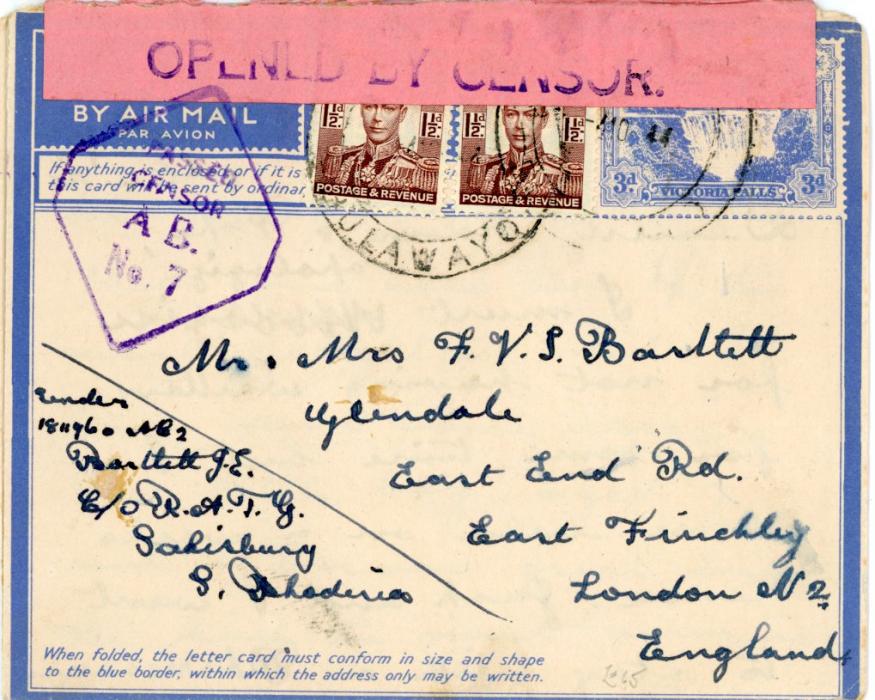 OPENED BY CENSOR.
BY AIR MAIL
PAR AVION
If anything is enclosed or if it is
this card will be sent by ordinar
1½d.
POSTAGE & REVENUE
1½d.
POSTAGE & REVENUE
3d
VICTORIA FALLS
3d
BULAWAYO
44
PASSED
CENSOR
A B.
No. 7
Mr. Mrs F. V. S. Bartlett
Glendale
East End Rd.
East Finchley
London N 2.
England.
Sender
AC2
Bartlett J.E.
C/o R.A.T.G.
Salisbury
S. Rhodesia
When folded, the letter card must conform in size and shape
to the blue border, within which the address only may be written.